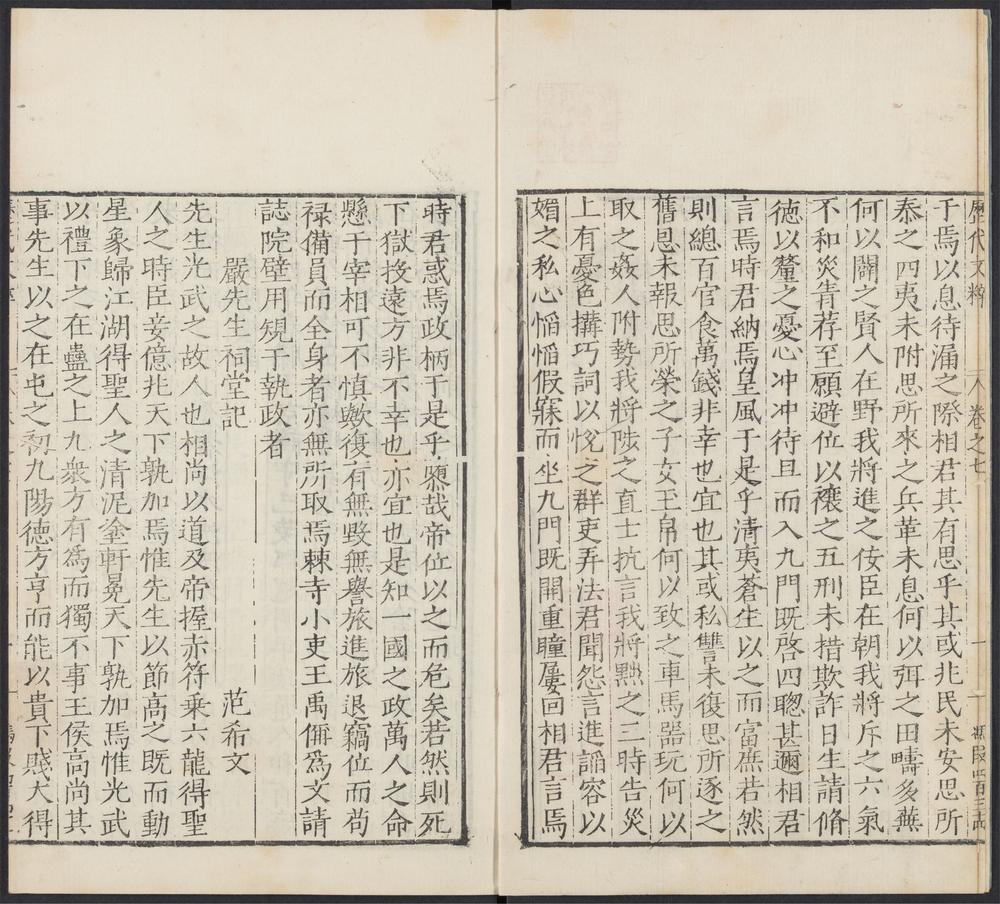 歷代文粹 卷之七
于焉以息待漏之際相君其有思乎其或兆民未安思所
泰之四夷未附思所來之兵革未息何以弭之田疇多蕪
何以闢之賢人在野我將進之佞臣在朝我將斥之六氣
不和災眚荐至願避位以禳之五刑未措欺詐日生請脩
德以釐之憂心冲冲待旦而入九門既啓四聰甚邇相君
言焉時君納焉皇風于是乎清夷蒼生以之而富庶若然
則總百官食萬錢非幸也宜也其或私讐未復思所逐之
舊恩未報思所榮之子女玉帛何以致之車馬器玩何以
取之姦人附勢我將陟之直士抗言我將黜之三時告災
上有憂色搆巧詞以悅之群吏弄法君聞怨言進謟容以
媚之私心慆慆假寐而坐九門既開重瞳屢回相君言焉
時君惑焉政柄于是乎隳哉帝位以之而危矣若然則死
下獄投遠方非不幸也亦宜也是知一國之政萬人之命
懸于宰相可不慎歟復有無毀無譽旅進旅退竊位而苟
祿備員而全身者亦無所取焉棘寺小吏王禹偁爲文請
誌院壁用規于執政者
嚴先生祠堂記 范希文
先生光武之故人也相尚以道及帝握赤符乗六龍得聖
人之時臣妾億兆天下孰加焉惟先生以節高之既而動
星象歸江湖得聖人之清泥塗軒冕天下孰加焉惟光武
以禮下之在蠱之上九衆方有爲而獨不事王侯高尚其
事先生以之在屯之初九陽德方亨而能以貴下賤大得